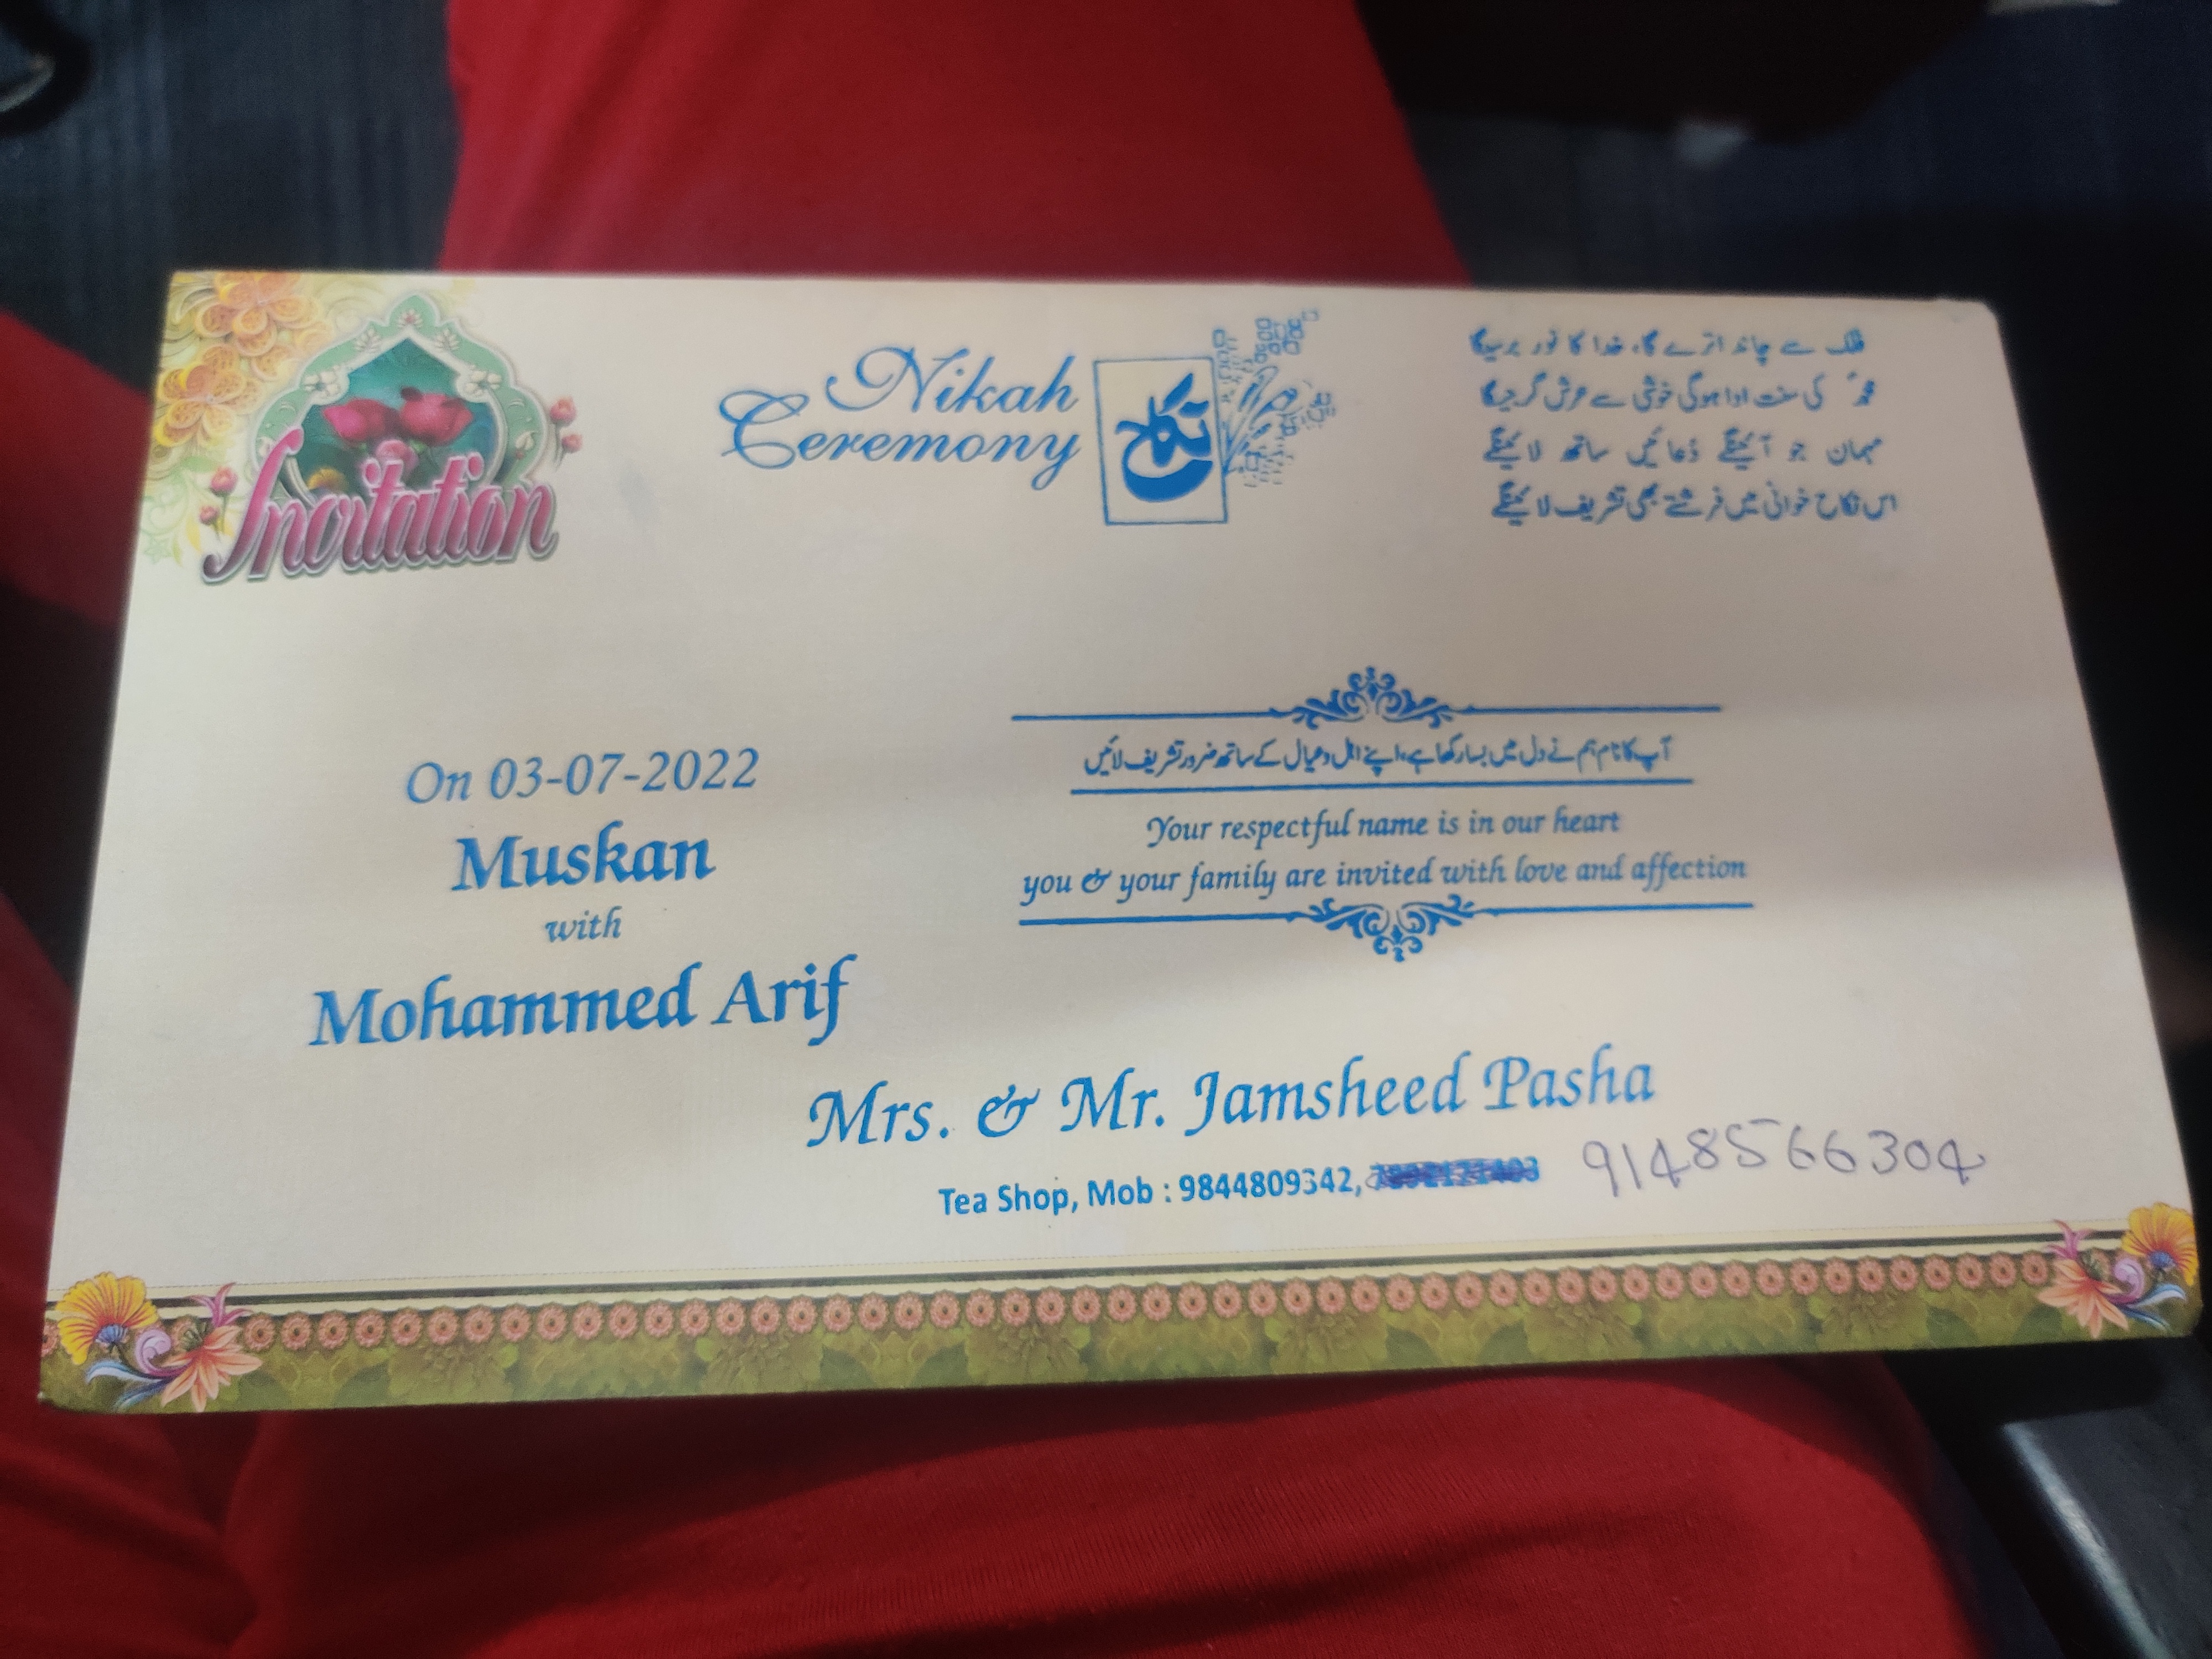 Invitation
Nikah
Ceremony
نکاح
فلک سے چاند اترے گا، خدا کا نور برسیگا
محمدؐ کی سنت ادا ہوگی خوشی سے عرش گرجیگا
مہمان جو آئینگے دُعائیں ساتھ لائینگے
اس نکاح خوانی میں فرشتے بھی تشریف لائینگے
On 03-07-2022
Muskan
with
Mohammed Arif
آپ کا نام ہم نے دل میں بسا رکھا ہے، اپنے اہل و عیال کے ساتھ ضرور تشریف لائیں
Your respectful name is in our heart
you & your family are invited with love and affection
Mrs. & Mr. Jamsheed Pasha
Tea Shop, Mob : 9844809342,
9148566304